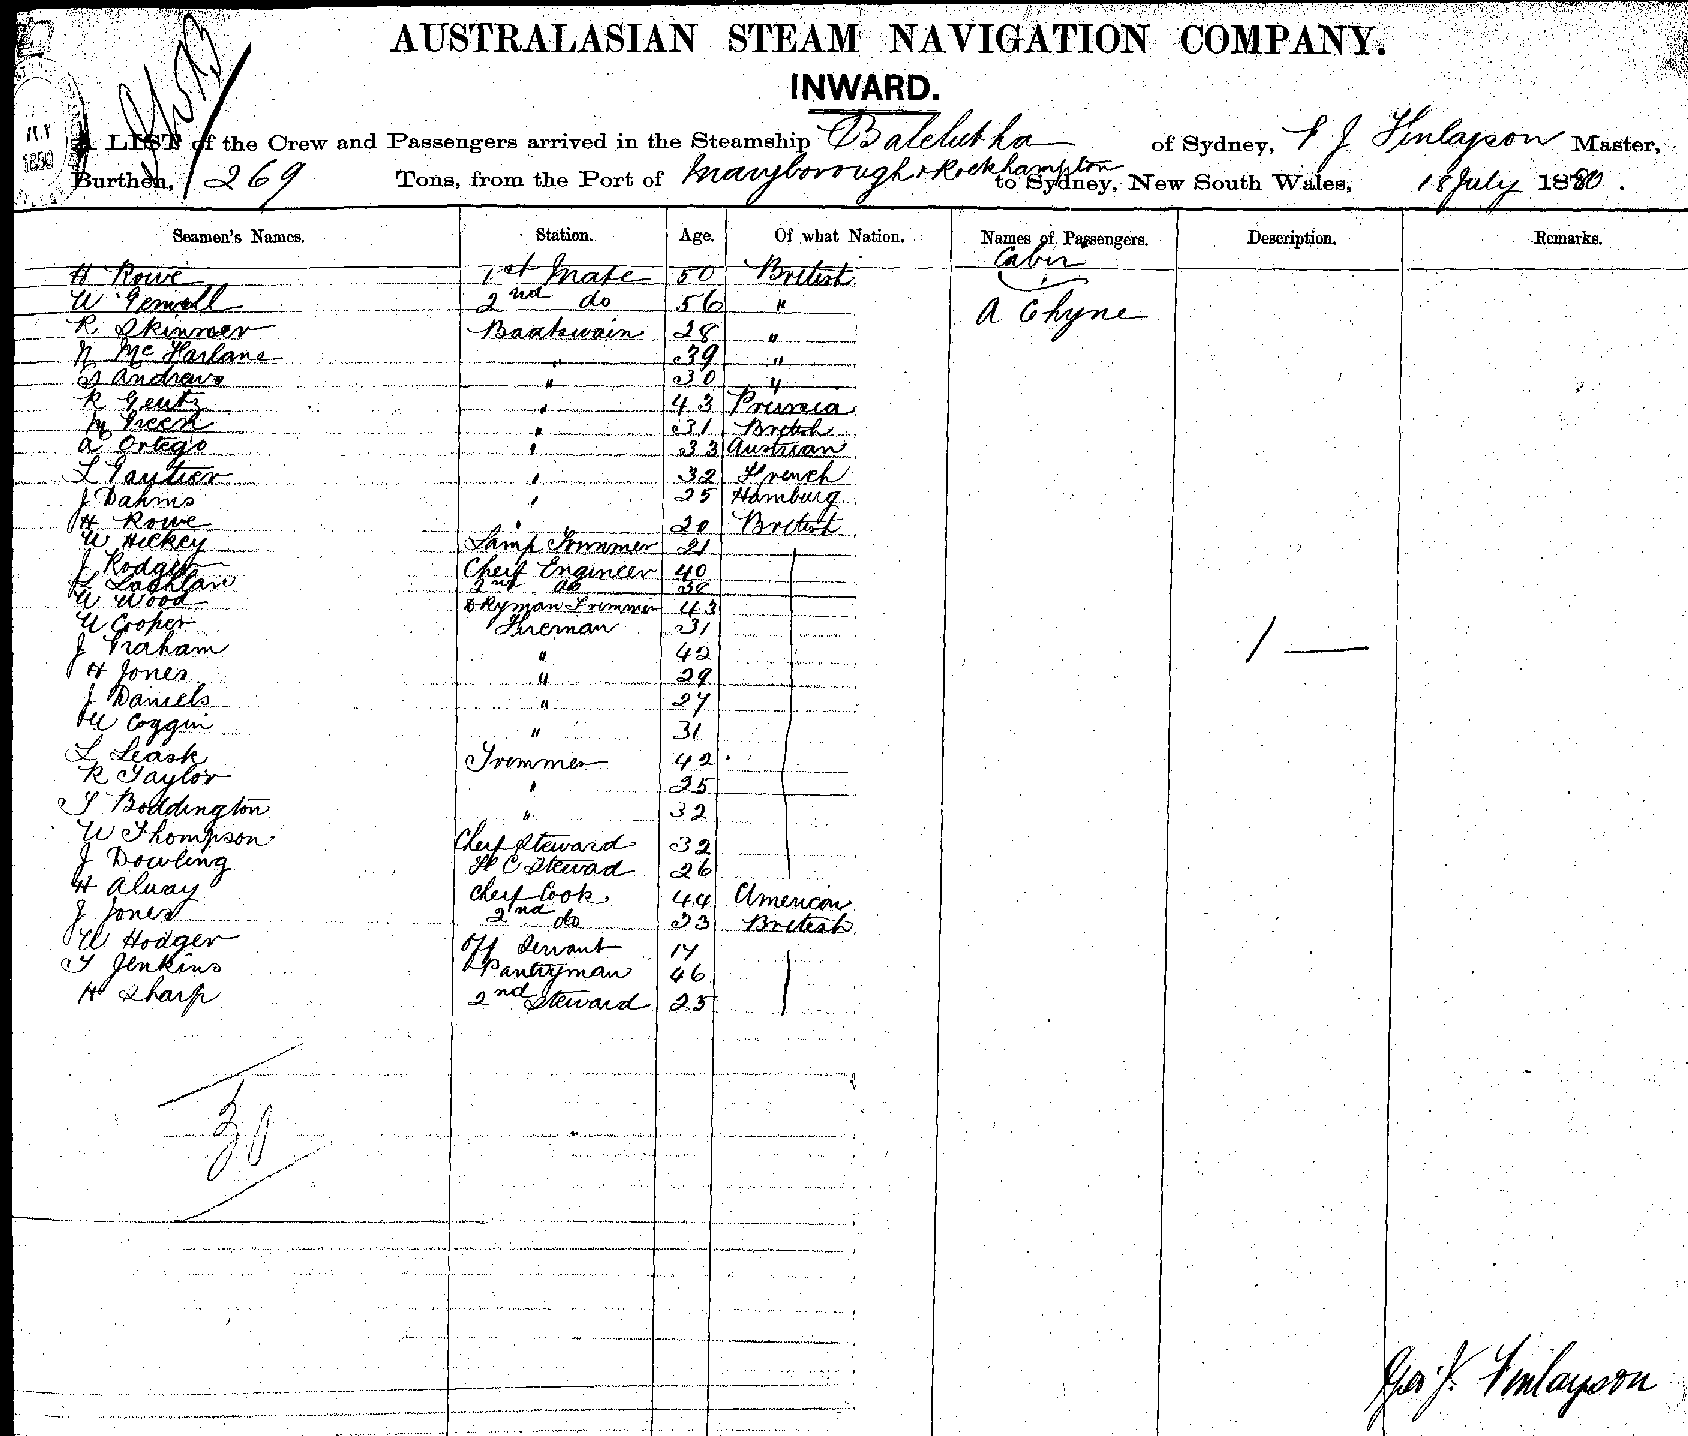 AUSTRALASIAN STEAM NAVIGATION COMPANY.
INWARD.
A LIST of the Crew and Passengers arrived in the Steamship Balclutha of Sydney, F J Finlayson Master,
Burthen, 269 Tons, from the Port of Maryborough & Rockhampton to Sydney, New South Wales, 18 July 1880.
Seamen's Names. Station. Age. Of what Nation. Names of Passengers. Description. Remarks.
Cabin
H Rowe 1st Mate 50 British
W Gemmell 2nd do 56 "
A Chyne
R Skinner Boatswain 28 "
N McFarlane " 39 "
S Andrews " 30 "
R Geutz " 43 Prussia
M Green " 31 British
A Ortego " 33 Austrian
L Gautier " 32 French
J Dahms " 25 Hamburg
H Rowe " 20 British
W Hickey Lamp Trimmer 21
J Rodger Cheif Engineer 40
L Lachlan 2nd do 38
W Wood Dkyman Trimmer 43
W Cooper Fireman 31
J Graham " 42
1
H Jones " 29
J Daniels " 27
W Coggin " 31
L Leask Trimmer 42
R Taylor " 25
T Boddington " 32
W Thompson Cheif Steward 32
J Dowling F C Steward 26
H Alway Cheif Cook 44 American
J Jones 2nd do 23 British
W Hodger Off Servant 17
T Jenkins Pantryman 46
H Sharp 2nd Steward 25
30
Geo J. Finlayson